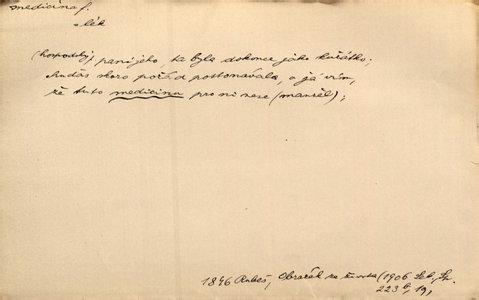 medicina f.
lék
(hospodský) paní jeho, ta byla dokonce jako kuřátko;
skoro pořád postonávala, a já vím,
že tuto medicinu pro ni nese (manžel);
1846 Rubeš, Obrázek ze života (1906 Seb. Sp.
223 , 19)